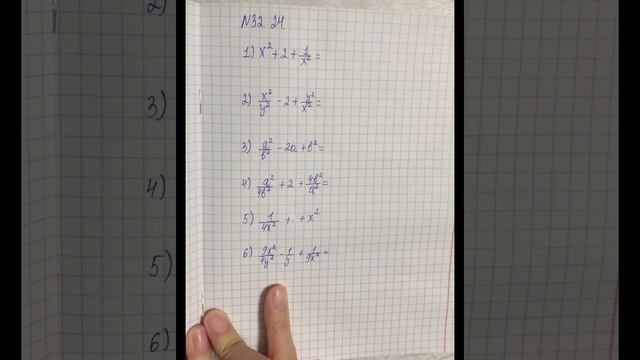 N32 24
1) x² + 2 + 1/x² =
2) x²/y² - 2 + y²/x² =
3) a²/b² - 2a + b² =
4) a²/4b² + 2 + 4b²/a² =
5) 1/4x² + + x²
6) 9x²/4y² - 1/y + 1/9x² =
2)
3)
4)
5)
6)